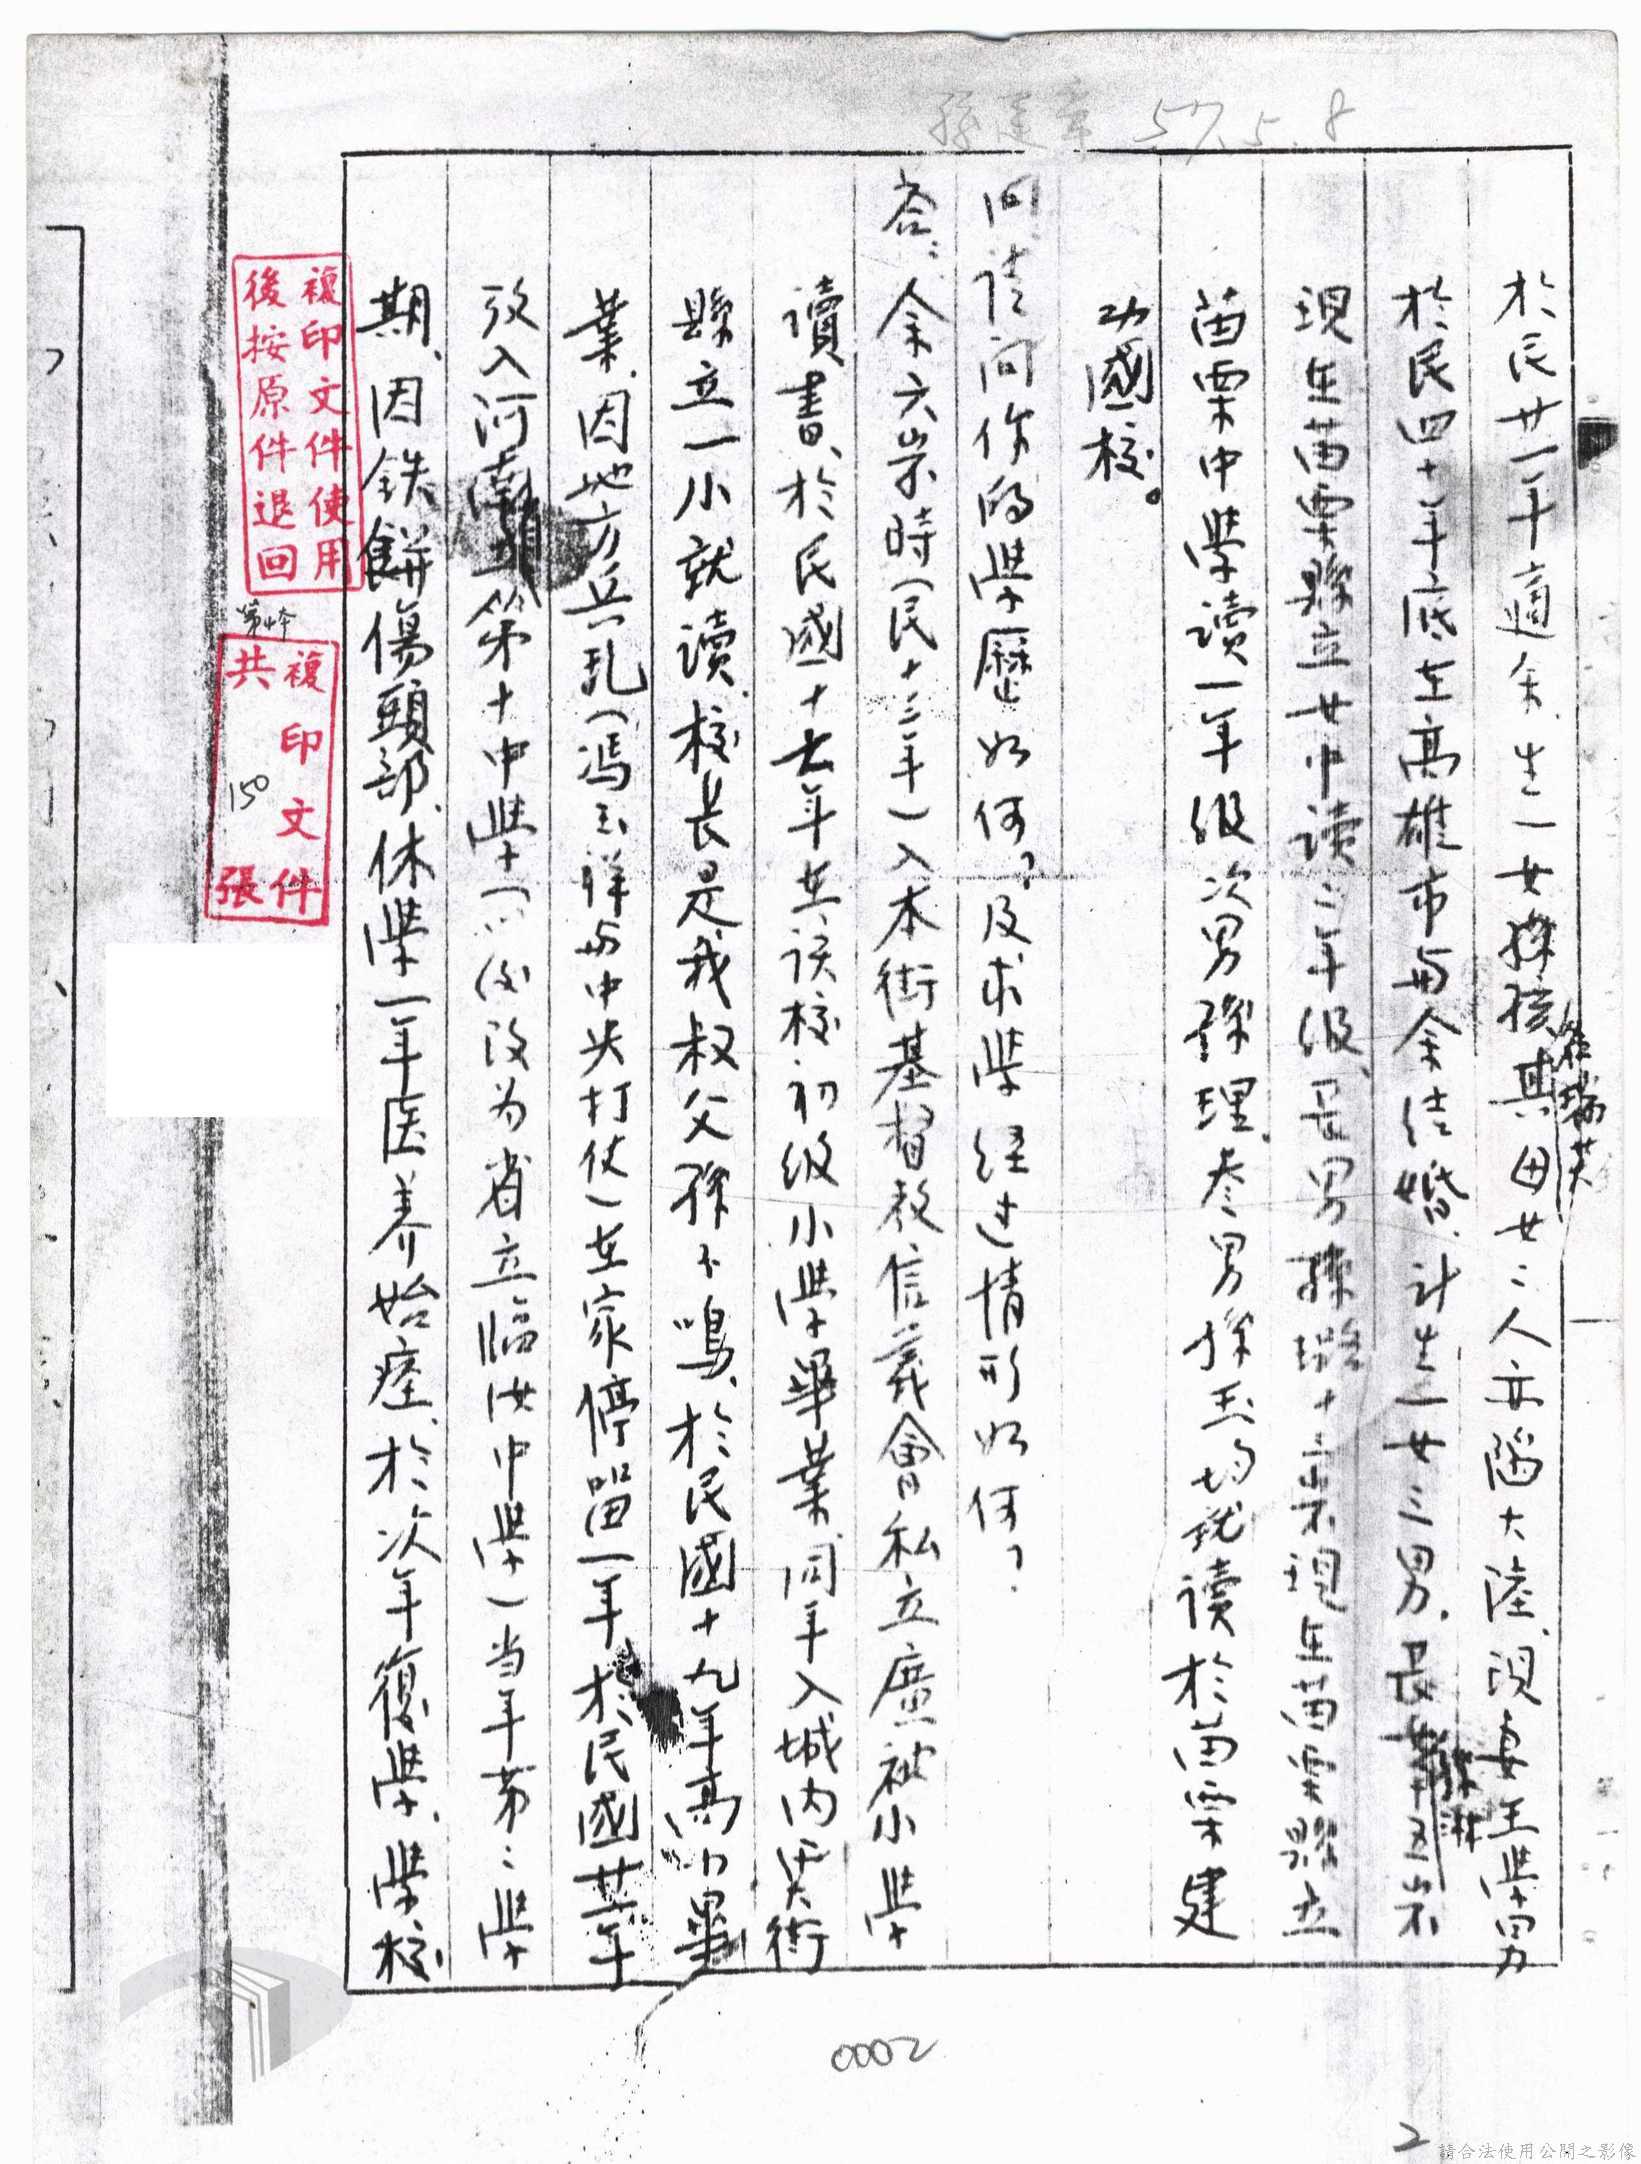 孫建章 57.5.8
於民廿一年適余、生一女孫核其母女二人亦陷大陸、現妻王學勇
於民四十一年底在高雄市與余结婚、计生一女三男、長女孫琳五岁
現在苗栗縣立女中读二年级、長男孫璐十三岁現在苗栗縣立
苗栗中學讀一年级次男孫理、叁男孫玉均就讀於苗栗建
功國校。
问:请问你的學歷如何?及求學经过情形如何?
答:余六岁時(民十三年)入本街基督教信義會私立廣被小學
讀書、於民國十七年在该校初级小學畢業、同年入城内关街
縣立一小就讀、校長是我叔父孫卜鳴、於民國十九年高小畢
業、因地方兵乱(冯玉祥与中央打仗)在家停留一年、於民國廿年
攷入河南第十中學(以後改为省立临汝中學)当年第二學
期、因铁餅傷頭部、休學一年医养始痊、於次年復學、學校
複印文件使用
後按原件退回
複印文件
共150張
0002
2
請合法使用公開之影像